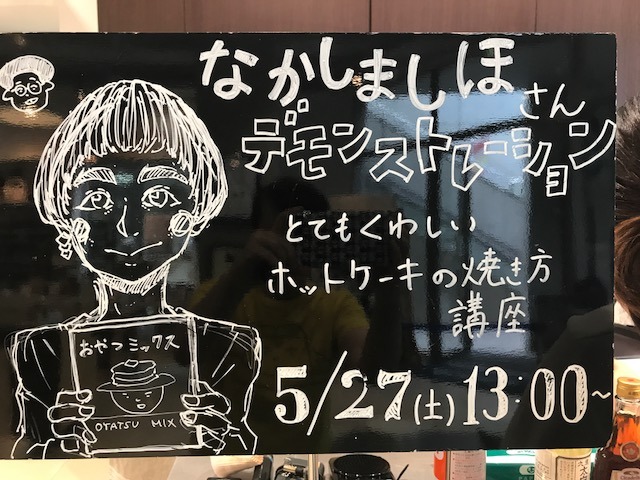 なかしましほ
さん
デモンストレーション
とてもくわしい
ホットケーキの焼き方
講座
5/27(土)13:00~
おやつミックス
OYATSU MIX